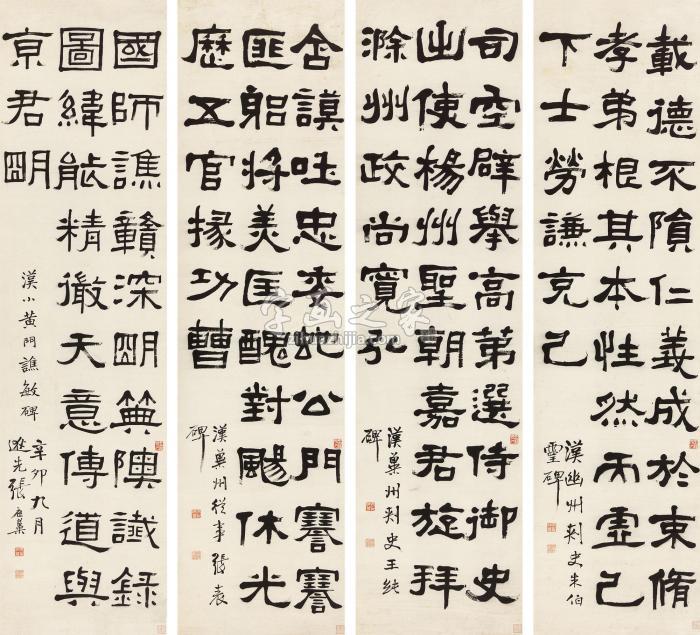 載德不隕仁義成於束脩
孝弟根其本性然而虛己
下士勞謙克己
漢幽州刺史朱伯
靈碑
司空辟舉高第選侍御史
出使楊州聖朝嘉君旋拜
滁州政尚寬弘
漢冀州刺史王純
碑
含謨吐忠委蛇公門謇謇
匪躳將美匡醜對颺休光
歷五官掾功曹
漢冀州從事張表
碑
國師譙贛深明典隩讖錄
圖緯能精徹天意傳道與
京君明
漢小黃門譙敏碑
辛卯九月
張
字画之家
zihuazhijia.com